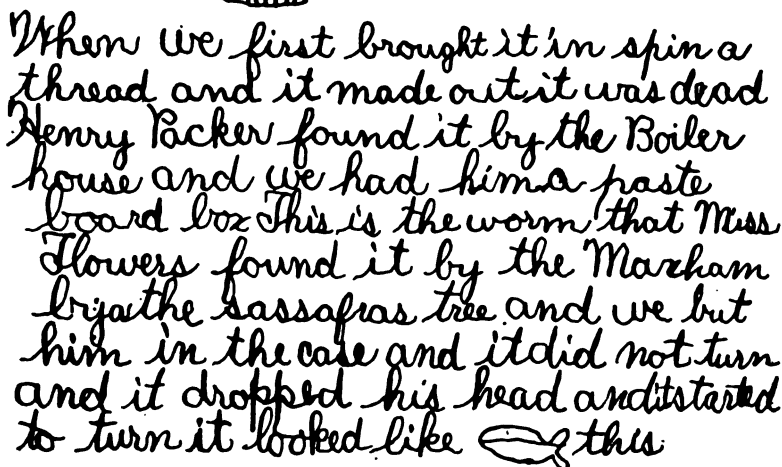 When we first brought it in spin a
thread and it made out it was dead
Henry Packer found it by the Boiler
house and we had him a paste
board box This is the worm that Miss
Flowers found it by the Marxham
by the sassafras tree and we but
him in the case and it did not turn
and it dropped his head and it started
to turn it looked like this